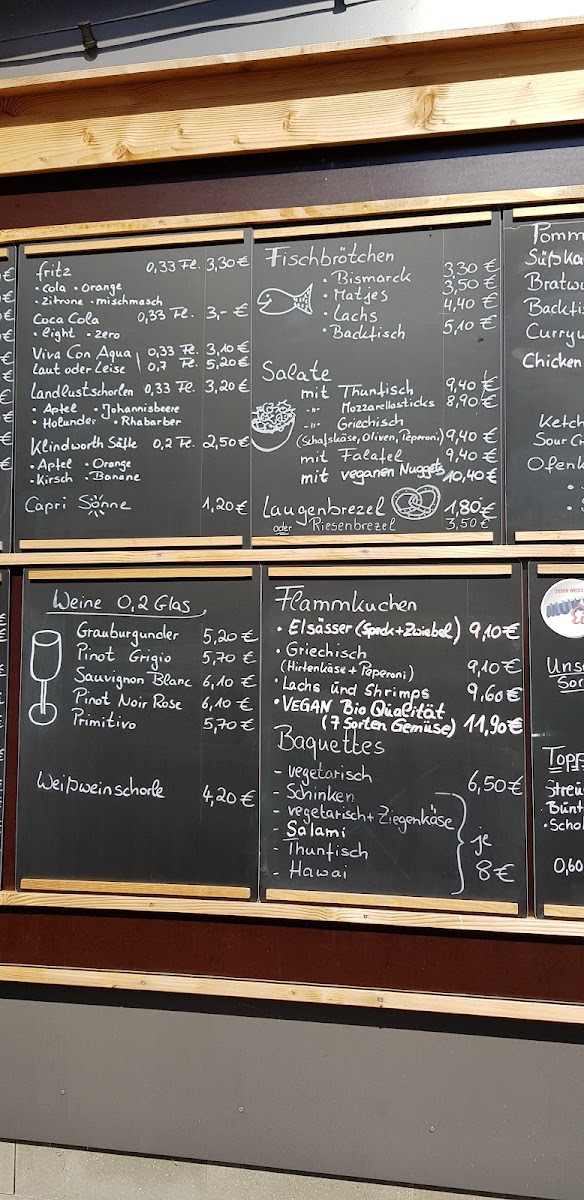 fritz 0,33 Fl. 3,30 €
• cola • orange
• zitrone • mischmasch
Coca Cola 0,33 Fl. 3,- €
• light • zero
Viva Con Aqua 0,33 Fl. 3,10 €
Laut oder Leise 0,7 Fl. 5,20 €
Landlustschorlen 0,33 Fl. 3,20 €
• Apfel • Johannisbeere
• Holunder • Rhabarber
Klindworth Säfte 0,2 Fl. 2,50 €
• Apfel • Orange
• Kirsch • Banane
Capri Sonne 1,20 €
Fischbrötchen
• Bismarck 3,30 €
• Matjes 3,50 €
• Lachs 4,40 €
• Backfisch 5,10 €
Salate
mit Thunfisch 9,40 €
-"- Mozzarellasticks 8,90 €
-"- Griechisch
(Schafskäse, Oliven, Peperoni) 9,40 €
mit Falafel 9,40 €
mit veganen Nuggets 10,40 €
Laugenbrezel 1,80 €
oder Riesenbrezel 3,50 €
Pomm
Süßka
Bratwu
Backfis
Curryw
Chicken
Ketch
Sour C
Ofenk
Weine 0,2 Glas
Grauburgunder 5,20 €
Pinot Grigio 5,70 €
Sauvignon Blanc 6,10 €
Pinot Noir Rose 6,10 €
Primitivo 5,70 €
Weißweinschorle 4,20 €
Flammkuchen
• Elsässer (Speck + Zwiebel) 9,10 €
• Griechisch
(Hirtenkäse + Peperoni) 9,10 €
• Lachs und Shrimps 9,60 €
• VEGAN Bio Qualität
(7 Sorten Gemüse) 11,90 €
Baquettes
- vegetarisch 6,50 €
- Schinken
- vegetarisch + Ziegenkäse
- Salami je
- Thunfisch
- Hawai 8 €
Unse
Sor
Topp
Streu
Bunt
• Scho
0,60